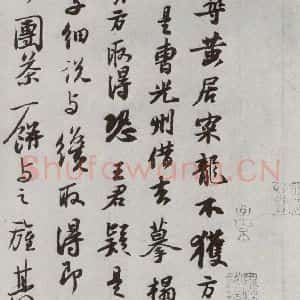 尋黃居寀龍不獲方
是曹光州借去摹搨
方取得恐王君疑是
子細說與纔取得即
團茶一餅與之旌其
Shufawang.CN